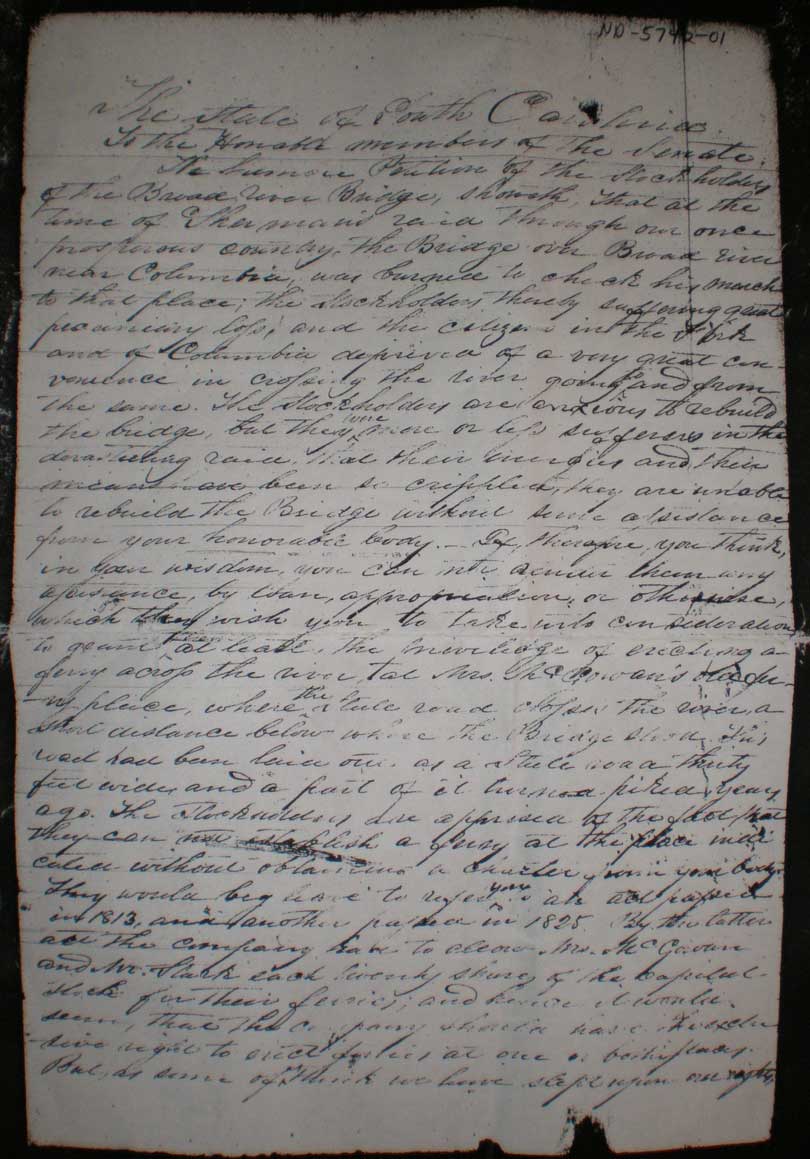 ND-5742-01
The State of South Carolina.
To the Honable members of the Senate.
The humble Petition of the Stockholders
of the Broad River Bridge, showeth, That at the
time of Sherman's raid through our once
prosperous country, the Bridge over Broad river
near Columbia, was burned to check his march
to that place; the Stockholders thereby suffering great
pecuniary loss; and the citizens in the Fork
and of Columbia deprived of a very great con-
venience in crossing the river going to and from
the same. The Stockholders are anxious to rebuild
the bridge, but they were more or less sufferers in the
devastating raid. That their energies and their
means have been so crippled, they are unable
to rebuild the Bridge without some assistance
from your honorable body. — If, therefore, you think,
in your wisdom, you can not render them any
assistance, by loan, appropriation, or otherwise,
which they wish you to take into consideration
to grant them at least, the priviledge of erecting a
ferry across the river, at Mrs. McGowan's old fer-
ry place, where the State road crosses the river, a
short distance below where the Bridge stood. This
road had been laid out as a State road thirty
feet wide, and a part of it turnpiked years
ago. The Stockholders are apprised of the fact that
they can not establish a ferry at the place indi
cated without obtaining a charter from your body.
They would beg leave to refer you to an act passed
in 1813, and another passed in 1825. By the latter
act the company have to allow Mrs. McGowan
and Mr. Stark each twenty shares of the capital
stock for their ferries; and hence it would
seem, that the company should have the exclu
sive right to erect ferries at one or both places.
But, as some of us think we have slept upon our rights,